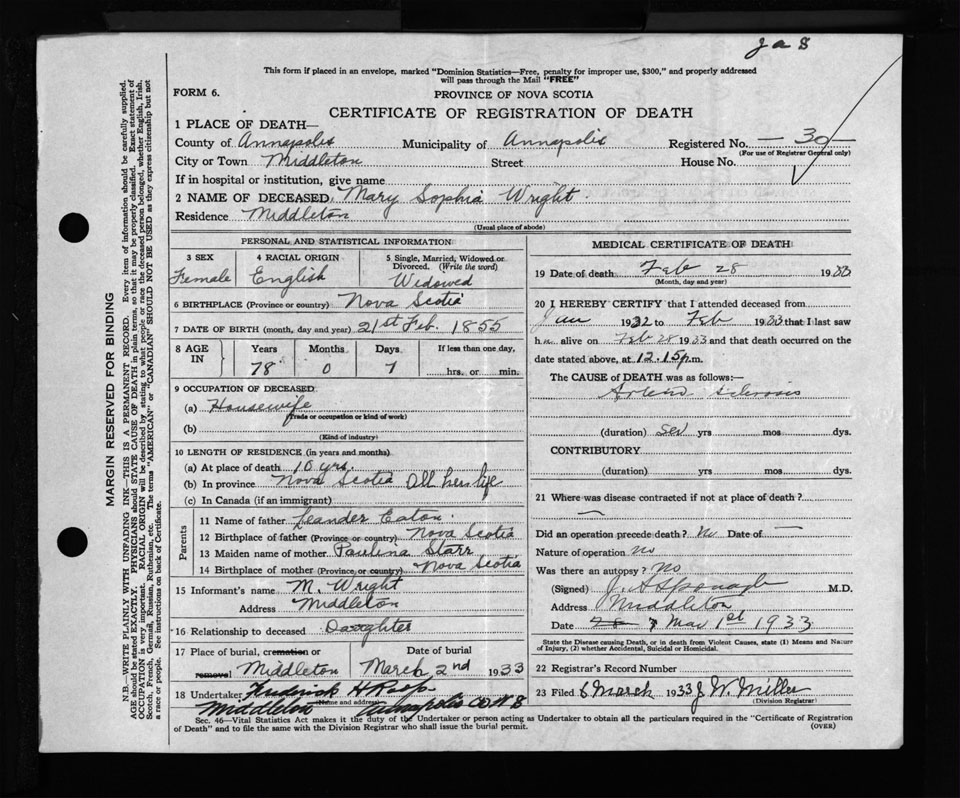 J a 8
This form if placed in an envelope, marked "Dominion Statistics—Free, penalty for improper use, $300," and properly addressed
will pass through the Mail "FREE"
FORM 6.
PROVINCE OF NOVA SCOTIA
CERTIFICATE OF REGISTRATION OF DEATH
1 PLACE OF DEATH—
County of Annapolis Municipality of Annapolis Registered No. — 30 —
(For use of Registrar General only)
City or Town Middleton Street House No.
If in hospital or institution, give name
2 NAME OF DECEASED Mary Sophia Wright
Residence Middleton
(Usual place of abode)
PERSONAL AND STATISTICAL INFORMATION
3 SEX 4 RACIAL ORIGIN 5 Single, Married, Widowed or
Divorced. (Write the word)
Female English Widowed
6 BIRTHPLACE (Province or country) Nova Scotia
7 DATE OF BIRTH (month, day and year) 21st Feb. 1855
8 AGE IN Years Months Days If less than one day,
78 0 7 hrs. or min.
9 OCCUPATION OF DECEASED
(a) Housewife
(Trade or occupation or kind of work)
(b)
(Kind of industry)
10 LENGTH OF RESIDENCE (in years and months)
(a) At place of death 10 yrs.
(b) In province Nova Scotia All her life
(c) In Canada (if an immigrant)
Parents
11 Name of father Leander Eaton
12 Birthplace of father (Province or country) Nova Scotia
13 Maiden name of mother Paulina Starr
14 Birthplace of mother (Province or country) Nova Scotia
15 Informant's name M. Wright
Address Middleton
16 Relationship to deceased Daughter
17 Place of burial, cremation or Date of burial
removal Middleton March 2nd 1933
18 Undertaker Frederick H
(Name and address)
Middleton Annapolis Co N S
MEDICAL CERTIFICATE OF DEATH
19 Date of death Feb 28 1933
(Month, day and year)
20 I HEREBY CERTIFY that I attended deceased from
Jan 1932 to Feb 1933 that I last saw
h alive on Feb 28 1933 and that death occurred on the
date stated above, at 12.15 p.m.
The CAUSE of DEATH was as follows:—
Arterio sclerosis
(duration) sev yrs mos dys.
CONTRIBUTORY
(duration) yrs mos dys.
21 Where was disease contracted if not at place of death?
—
Did an operation precede death? No Date of —
Nature of operation no
Was there an autopsy? No
(Signed) M.D.
Address Middleton
Date Mar 1st 1933
State the Disease causing Death, or in death from Violent Causes, state (1) Means and Nature
of Injury, (2) whether Accidental, Suicidal or Homicidal.
22 Registrar's Record Number
23 Filed 8 March 1933 J W Miller
(Division Registrar)
Sec. 46—Vital Statistics Act makes it the duty of the Undertaker or person acting as Undertaker to obtain all the particulars required in the "Certificate of Registration
of Death" and to file the same with the Division Registrar who shall issue the burial permit.
(OVER)
MARGIN RESERVED FOR BINDING
N.B.—WRITE PLAINLY WITH UNFADING INK—THIS IS A PERMANENT RECORD. Every item of information should be carefully supplied.
AGE should be stated EXACTLY. PHYSICIANS should STATE CAUSE OF DEATH in plain terms, so that it may be properly classified. Exact statement of
OCCUPATION is very important. RACIAL ORIGIN will be described by stating to what people or race the deceased person belonged, whether English, Irish,
Scotch, French, German, Russian, Ruthenian, etc. The terms "AMERICAN" or "CANADIAN" SHOULD NOT BE USED as they express citizenship but not
a race or people. See instructions on back of Certificate.